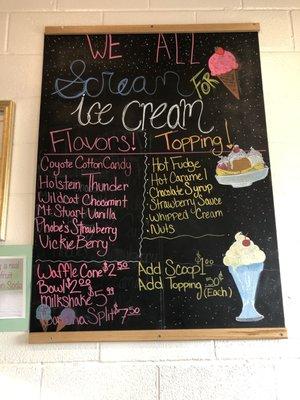 WE ALL
Scream FOR
Ice CREAM
Flavors! Topping!
Coyote Cotton Candy
Holstein Thunder
Wildcat Chocomint
Mt. Stuart Vanilla
Phobe's Strawberry
Vickie Berry
Hot Fudge
Hot Caramel
Chocolate Syrup
Strawberry Sauce
Whipped Cream
Nuts
Waffle Cone $2.50
Bowl $2.00
milkshake $5.99
Split $7.50
Add Scoop $1.00
Add Topping .50
(Each)